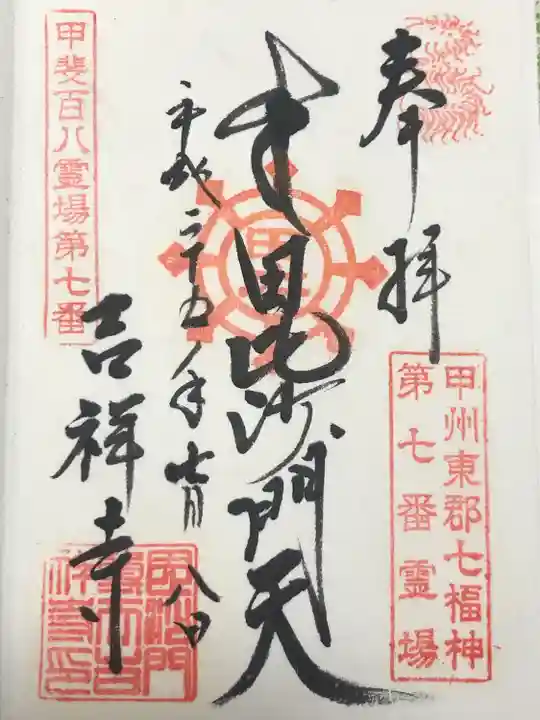 奉拝
甲州東郡七福神
第七番霊場
毘沙門天
平成二十五年七月八日
甲斐百八霊場第七番
吉祥寺